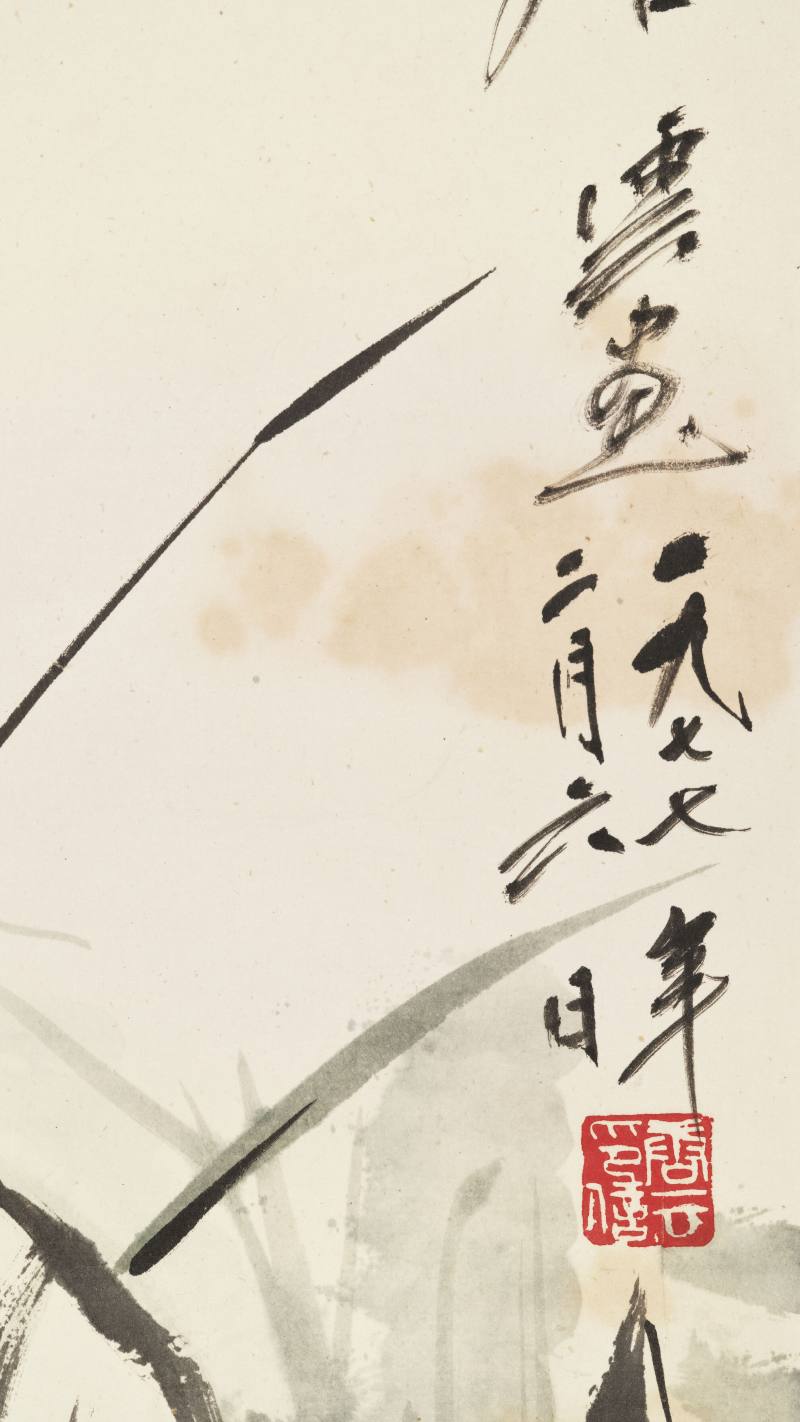 雲畫一九七七年
二月六日
唐云
印信